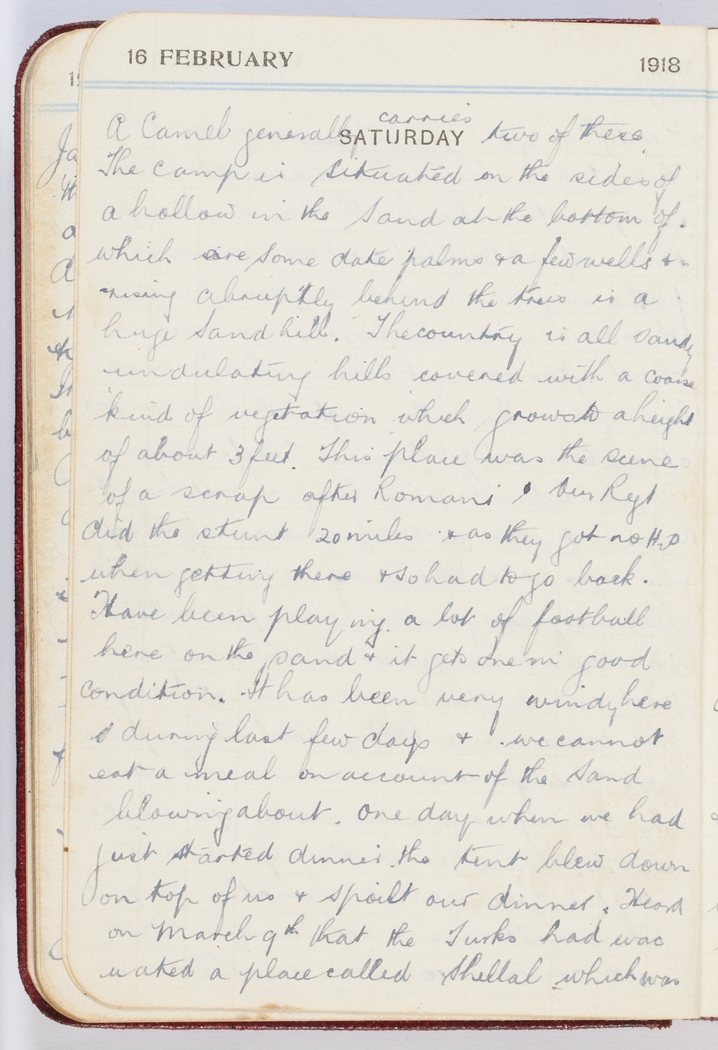 16 FEBRUARY 1918
carries
A Camel generally SATURDAY two of these
The camp is situated on the sides of
a hollow in the sand at the bottom of
which are some date palms & a few wells &
rising abruptly behind the trees is a
huge sand hill. The country is all sandy
undulating hills covered with a coarse
kind of vegetation which grows to a height
of about 3 feet. This place was the scene
of a scrap after Romani, Our Regt
did the stunt 20 miles & as they got no H2O
when getting there & so had to go back.
Have been playing a lot of football
here on the sand & it gets one in good
condition. It has been very windy here
during last few days & we cannot
eat a meal on account of the sand
blowing about. One day when we had
just started dinner the tent blew down
on top of us & spoilt our dinner. Heard
on March 9th that the Turks had evac
uated a place called Shellal which was